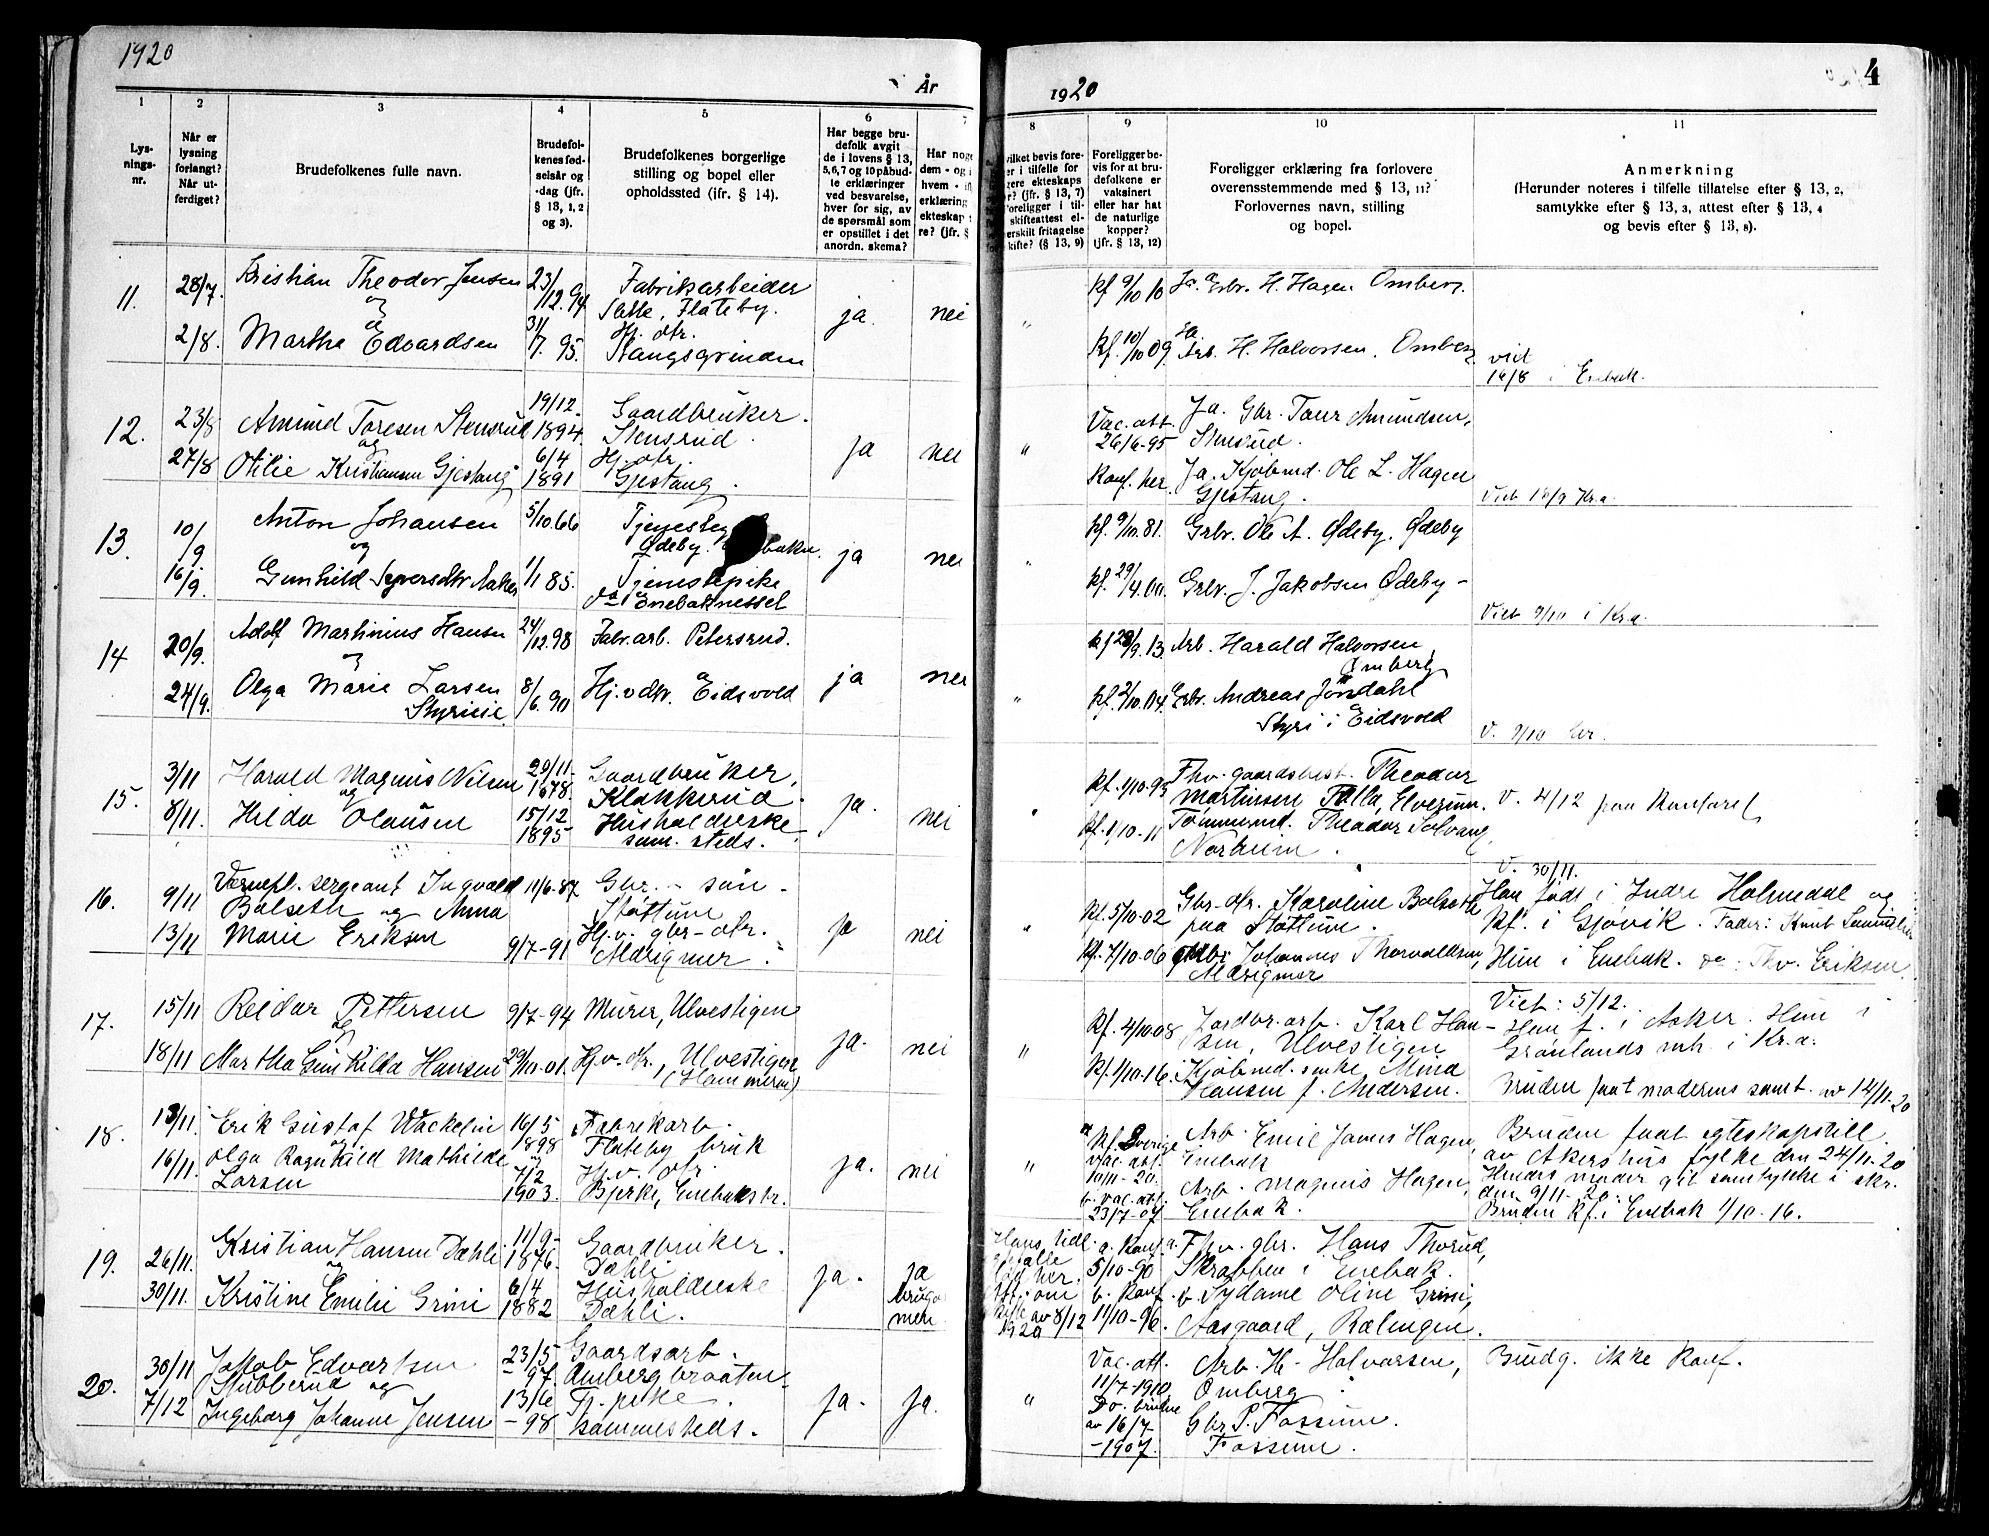 1920
År
1
2
3
4
5
6
7
Lys-
nings-
nr.
Når er
lysning
forlangt?
Når ut-
ferdiget?
Brudefolkenes fulle navn.
Brudefol-
kenes fød-
selsår og
-dag (jfr.
§ 13, 1, 2
og 3).
Brudefolkenes borgerlige
stilling og bopel eller
opholdssted (jfr. § 14).
Har begge bru-
defolk avgit
de i lovens § 13,
5, 6, 7 og 10 påbud-
te erklæringer
ved besvarelse,
hver for sig, av
de spørsmål som
er opstillet i det
anordn. skema?
Har noge
dem - og i
hvem - in
erklæring
ekteskap
re? (jfr. §
11.
28/7.
Kristian Theodor Jensen
23/12.94
Fabrikarbeider
og
Flateby.
ja.
nei
2/8.
Martha Edvardsen
31/7. 95.
Hj. dtr.
Stangsgrinden
12.
23/8
Amund Toresen Stensrud
19/12.
1894.
Gaardbruker.
Stensrud.
og
ja
nei
27/8
Otilie Kristiansen Gjestang
6/4
1891
Hj. dtr.
Gjestang.
13.
10/9
Anton Johansen
5/10.66
Ødeby.
og
ja
nei
16/9.
Gunhild Syversdtr Aaker
1/1 85.
Tjenestepike
Enebaknesset
14
20/9.
Adolf Martinius Hansen
24/12.98
Fabr.arb. Petersrud.
og
ja
nei
24/9.
Olga Marie Larsen
8/6. 90
Hj.v. dtr. Eidsvold
15.
3/11
Harald Magnus Nilsen
29/11-
1878.
Gaardbruker,
Klokkerud.
og
ja.
nei
8/11.
Hilda Olausen
15/12
1895
Husholderske
sam. steds.
16.
9/11
Vernepl. sergeant Ingvald
Balseth og Anna
11/6-87
Gbr. - søn -
Støttum
ja
nei
13/11
Marie Eriksen
9/7-91
Hj. v. gbr-dtr.
17.
15/11
Reidar Pettersen
9/7-94
Murer, Ulvestigen
og
ja.
nei
18/11
Martha Gunhilda Hansen
29/10-01.
Hj. v. dtr., Ulvestigen
(Hammeren)
18.
13/11.
Erik Gustaf Wackelin
16/5
1898
Fabrikarb.
Flateby bruk
og
16/11.
Olga Ragnhild Mathilde
Larsen
7/2
1903.
Hj. v. dtr.
Bjerke, Enebakstr.
ja.
nei
19.
26/11.
Kristian Hansen Dæhli
11/9-
1876.
Gaardbruker.
Dæhli
og
ja.
ja
30/11.
Kristine Emilie Grini
6/4
1882
Husholderske
Dæhli.
20.
30/11
Jakob Edvartsen
Stubberud og
23/5
- 97.
Gaardsarb.
Ombergbraaten
7/12
Ingeborg Johanne Jensen
13/6
- 98
Tj. pike.
sammesteds.
ja.
ja.
1920
4
8
9
10
11
vilket bevis fore-
er i tilfelle for
gere ekteskaps
r? (jfr. § 13, 7)
Foreligger i til-
skifteattest el-
erskilt fritagelse
kifte? (§ 13, 9)
Foreligger be-
vis for at bru-
defolkene er
vaksinert
eller har hat
de naturlige
kopper?
(jfr. § 13, 12)
Foreligger erklæring fra forlovere
overensstemmende med § 13, 11?
Forlovernes navn, stilling
og bopel.
Anmerkning
(Herunder noteres i tilfelle tillatelse efter § 13, 2,
samtykke efter § 13, 3, attest efter § 13, 4
og bevis efter § 13, 8).
"
kf 9/10 10
Ja. Grbr. H. Hagen Omberg.
kf. 10/10 09
Arb. H. Halvorsen. Omberg
vied
14/8 i Enebak.
"
Vac. att.
26/6-95
Ja. Gbr. Tore Amundsen,
Stensrud.
Konf. her.
Ja. Kjøbmd. Ole L. Hagen
Gjestang.
Viet 18/9 Kr.a.
"
kf. 9/10. 81.
Grbr. Ole A. Ødeby. Ødeby
kf. 29/4.00.
Grbr. J. Jakobsen Ødeby -
Viet 9/10 i Kr.a.
"
kf 28/9. 13.
Arb. Harald Halvorsen
Omberg
kf. 2/10.04.
Grbr. Andreas Jøndahl
Styri i Eidsvold
V. 9/10 her.
"
kf. 1/10.93
Fhv. gaardsbest. Theodor
Martinsen Tolla, Elverum.
V. 4/12 paa kontoret
kf. 1/10-11
Tømmermd. Theodor Solvang,
Norheim.
"
V. 30/11.
kf. 5/10-02
Gbr-dtr. Karoline Balseth
paa Støttum.
Han født i Indre Holmedal og
kf. i Gjøvik. Fader: Knut Samuelsen
kf. 7/10-06
Johannes Thorvaldsen,
Hun i Enebak. do: Thv. Eriksen.
"
kf. 4/10-08
Jordbr. arb. Karl Han-
sen, Ulvestigen
Viet: 5/12.
Han f. i Aker. Hun i
Grønlands mh. i Kr.a.
kf. 1/10-16.
Kjøbmd. enke Mina
Hansen f. Andersen.
Bruden faat moderens samt. av 14/11-20
"
kf. Sverige
Vac. att.
10/11-20.
b. vac. att.
23/7-07
Arb. Emil James Hagen,
Enebak
Arb. Magnus Hagen,
Enebak.
Bruden faat egteskapstill.
av Akershus fylke den 24/11-20
Hendes moder git samtykke i skr.
den 9/11-20.
Bruden kf. i Enebak 1/10-16.
Hans tidl.
av 8/12
1920
a. Konf.
5/10-90
b. Konf.
11/10-96.
a. Fhv. gbr. Hans Thorud,
Skrabben i Enebak.
b. Sydame Oline Grini,
Aasgaard, Rælingen.
"
Vac. att.
11/7-1910.
Do. brudne
av 16/7
-1907.
Arb. H. Halvorsen,
Omberg.
Gbr P. Fossum.
Fossum.
Brudg. ikke konf.